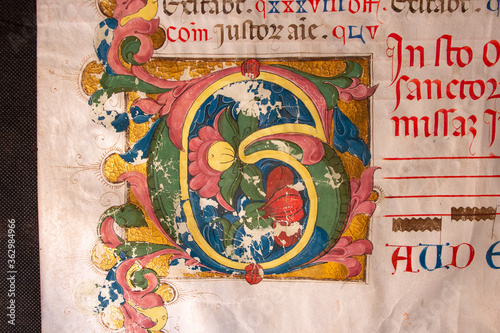 Exitabt. qxxxviii off. Exitabt.
com̄ iustor aīe. qlv
In sto O
sanctor
missaz
G
AUDE
Adobe Stock | #362984966